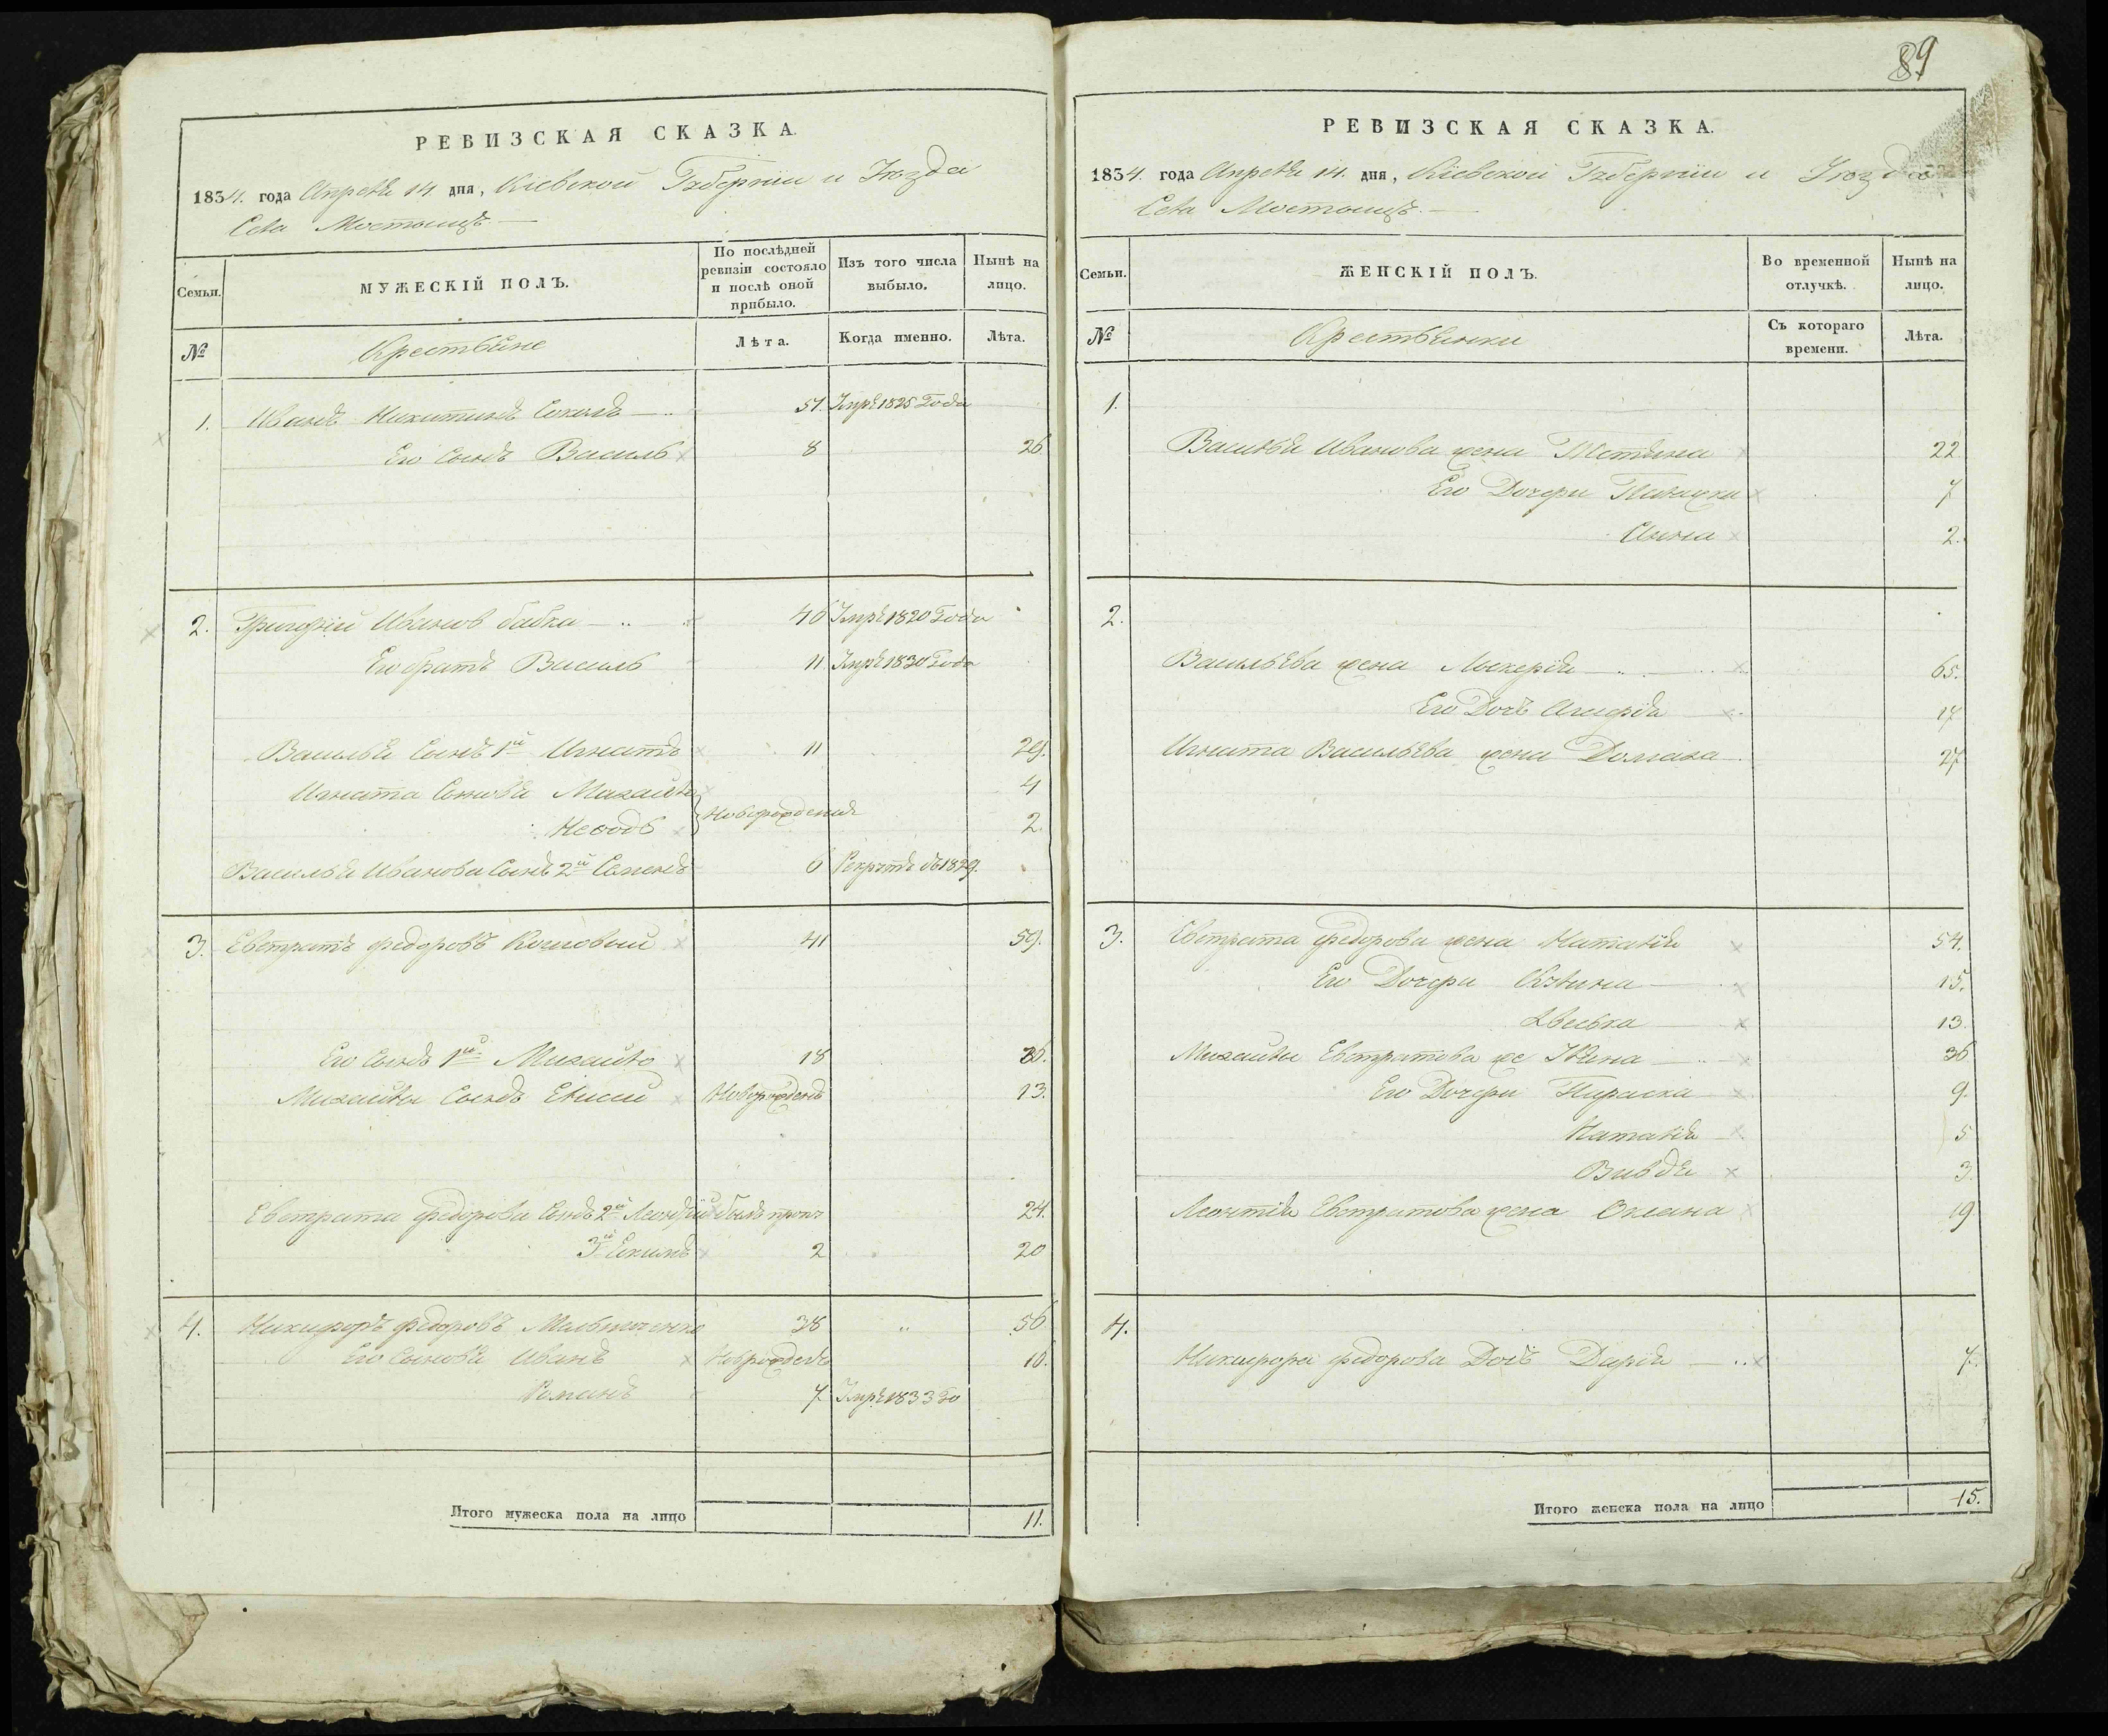 89
РЕВИЗСКАЯ СКАЗКА.
1834. года Апреля 14 дня, Кіевской Губерніи и Уезда
Села Мостищъ
Семьи.
МУЖЕСКІЙ ПОЛЪ.
По послѣдней ревизіи состояло и послѣ оной прибыло.
Изъ того числа выбыло.
Нынѣ на лицо.
№
Крестьяне
Лѣта.
Когда именно.
Лѣта.
1. Иванъ Никитинъ 51. Умре 1825 Года
Его Сынъ Василь 8 26.
2. Григорій Ивановъ бабка 46 Умре 1820 Года
Его братъ Василь 11 Умре 1830 Года
Василья Сынъ 1й Игнатъ 11 29.
Игната Сыновья Михайло 4
Новорождения
2.
Василья Иванова Сынъ 2й Семенъ 6 Рекрутъ въ 1829.
3. Евстратъ Федоровъ 41 59.
Его Сынъ 1й Михайло 18 36.
Михайлы Сынъ Елисей Новорожденъ 13.
Евстрата Федорова Сынъ 2й Леонтій былъ проп 24.
3й 2 20
4. Никифоръ Федоровъ Мельниченко 38 56
Его Сыновья Иванъ Новорожденъ 10.
Романъ 7 Умре 1833 Го
Итого мужеска пола на лицо 11.
РЕВИЗСКАЯ СКАЗКА.
1834. года Апреля 14. дня, Кіевской Губерніи и Уезда
Села Мостищъ.
Семьи.
ЖЕНСКІЙ ПОЛЪ.
Во временной отлучкѣ.
Нынѣ на лицо.
№
Крестьянки
Съ котораго времени.
Лѣта.
1.
Василья Иванова жена Тетяна 22
Его Дочери 7
Анна 2.
2.
Васильева жена 65.
Его Дочь 17
Игната Васильева жена Домаха 27
3. Евстрата Федорова жена Наталія 54.
Его Дочери Акулина 15.
13.
Михайлы Евстратова же Уляна 36
Его Дочери Параска 9.
Наталія 5
Вивдя 3.
Леонтія Евстратова жена Оксана 19
4.
Никифора Федорова Дочь Дарія 7.
Итого женска пола на лицо 15.